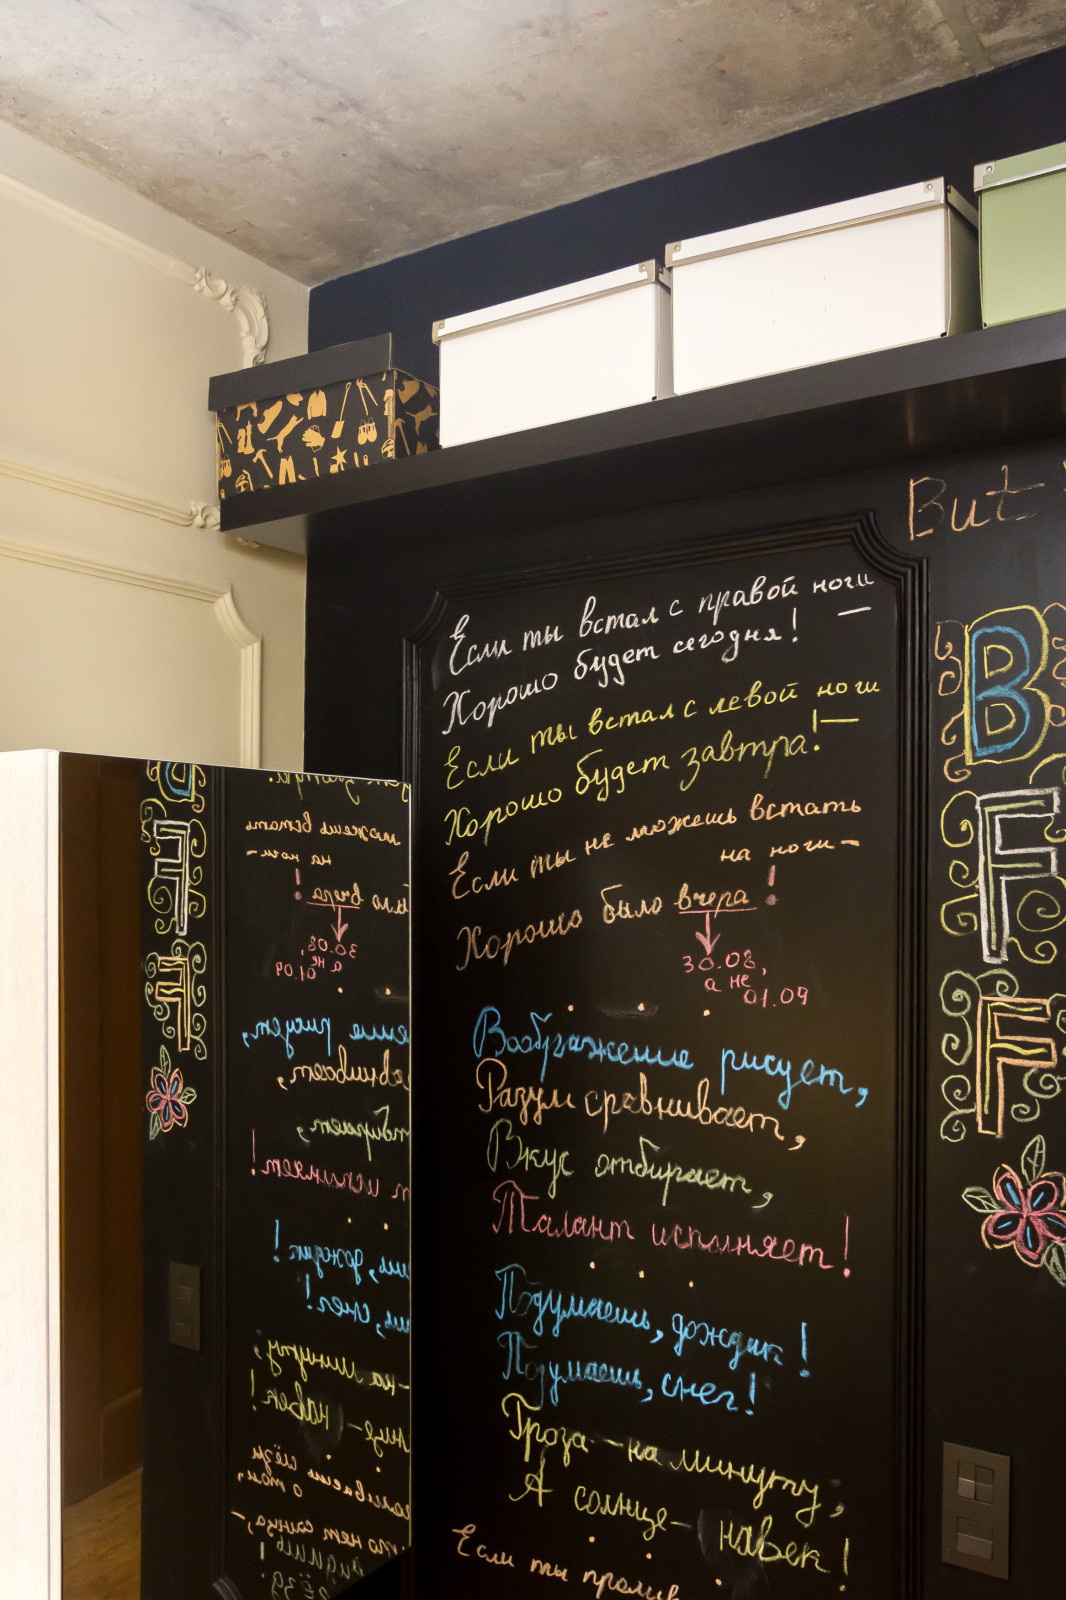 Если ты встал с правой ноги —
Хорошо будет сегодня!
Если ты встал с левой ноги —
Хорошо будет завтра!
Если ты не можешь встать
на ноги —
Хорошо было вчера!
30.08,
а не
01.09
Воображение рисует,
Разум сравнивает,
Вкус отбирает,
Талант исполняет!
Подумаешь, дождик!
Подумаешь, снег!
Гроза — на минуту,
А солнце — навек!
Если ты пролив
But
B
F
F